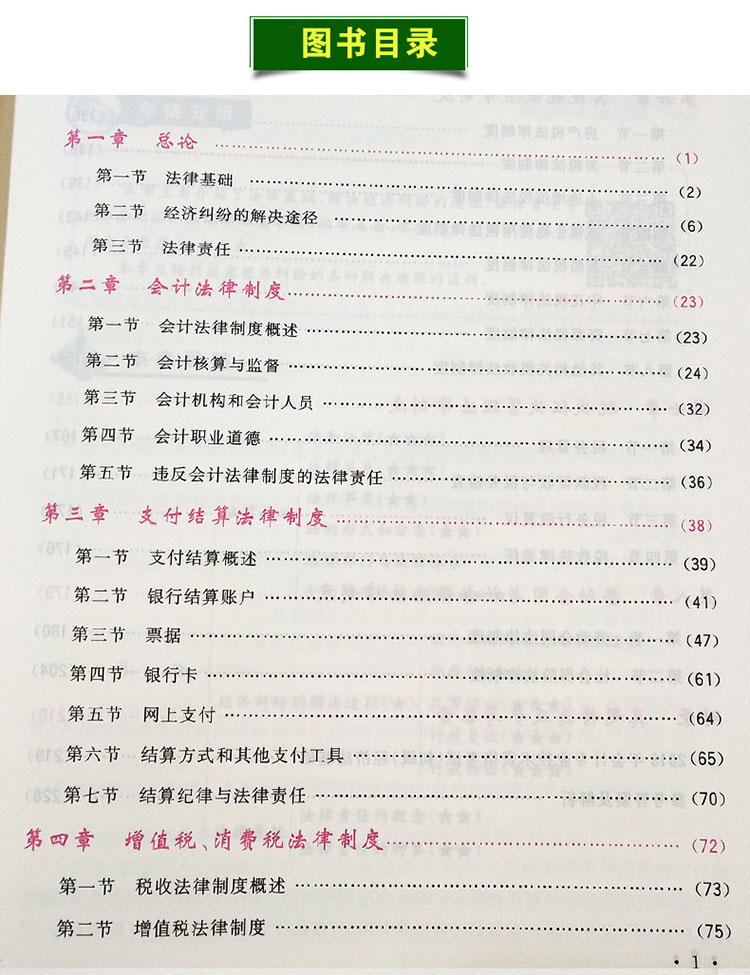 图书目录
第一章 总论 ……………………………………………… (1)
第一节 法律基础 ……………………………………………… (2)
第二节 经济纠纷的解决途径 ……………………………………………… (6)
第三节 法律责任 ……………………………………………… (22)
第二章 会计法律制度 ……………………………………………… (23)
第一节 会计法律制度概述 ……………………………………………… (23)
第二节 会计核算与监督 ……………………………………………… (24)
第三节 会计机构和会计人员 ……………………………………………… (32)
第四节 会计职业道德 ……………………………………………… (34)
第五节 违反会计法律制度的法律责任 ……………………………………………… (36)
第三章 支付结算法律制度 ……………………………………………… (38)
第一节 支付结算概述 ……………………………………………… (39)
第二节 银行结算账户 ……………………………………………… (41)
第三节 票据 ……………………………………………… (47)
第四节 银行卡 ……………………………………………… (61)
第五节 网上支付 ……………………………………………… (64)
第六节 结算方式和其他支付工具 ……………………………………………… (65)
第七节 结算纪律与法律责任 ……………………………………………… (70)
第四章 增值税、消费税法律制度 ……………………………………………… (72)
第一节 税收法律制度概述 ……………………………………………… (73)
第二节 增值税法律制度 ……………………………………………… (75)
· 1 ·